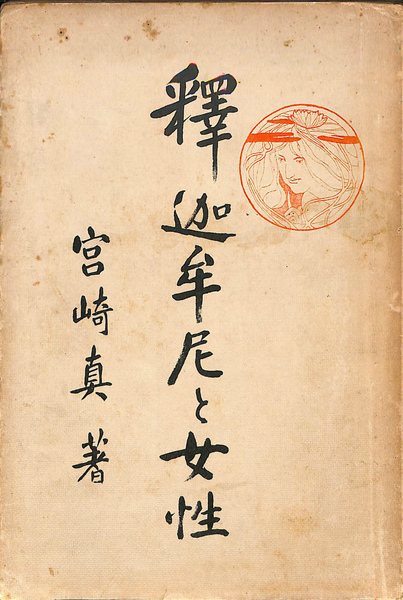 釋迦牟尼と女性
宮崎真著